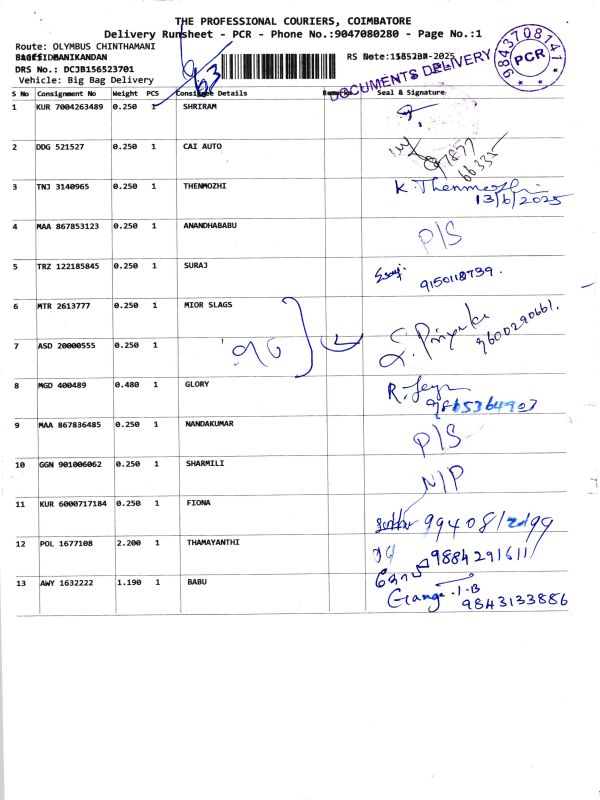 THE PROFESSIONAL COURIERS, COIMBATORE
Delivery Runsheet - PCR - Phone No.:9047080280 - Page No.:1
Route: OLYMBUS CHINTHAMANI
MANIKANDAN
RS Note:
DRS No.: DCJB156523701
Vehicle: Big Bag Delivery
DOCUMENTS DELIVERY
9843708141
PCR
S No Consignment No Weight PCS Consignee Details Remarks Seal & Signature
1 KUR 7004263489 0.250 1 SHRIRAM
2 DDG 521527 0.250 1 CAI AUTO
3 TNJ 3140965 0.250 1 THENMOZHI K. Thenmozhi
13/6/2025
4 MAA 867853123 0.250 1 ANANDHABABU P/S
5 TRZ 122185845 0.250 1 SURAJ 9150118739.
6 MTR 2613777 0.250 1 MIOR SLAGS S. Priyanka
9600290661.
7 ASD 20000555 0.250 1
8 MGD 400489 0.480 1 GLORY
9865364903
9 MAA 867836485 0.250 1 NANDAKUMAR P/S
10 GGN 901006062 0.250 1 SHARMILI N/P
11 KUR 6000717184 0.250 1 FIONA
12 POL 1677108 2.200 1 THAMAYANTHI 9884291611
13 AWY 1632222 1.190 1 BABU
Ganga .I.B
9843133886